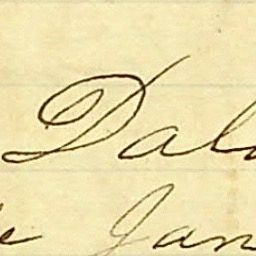 Dal
e Jan